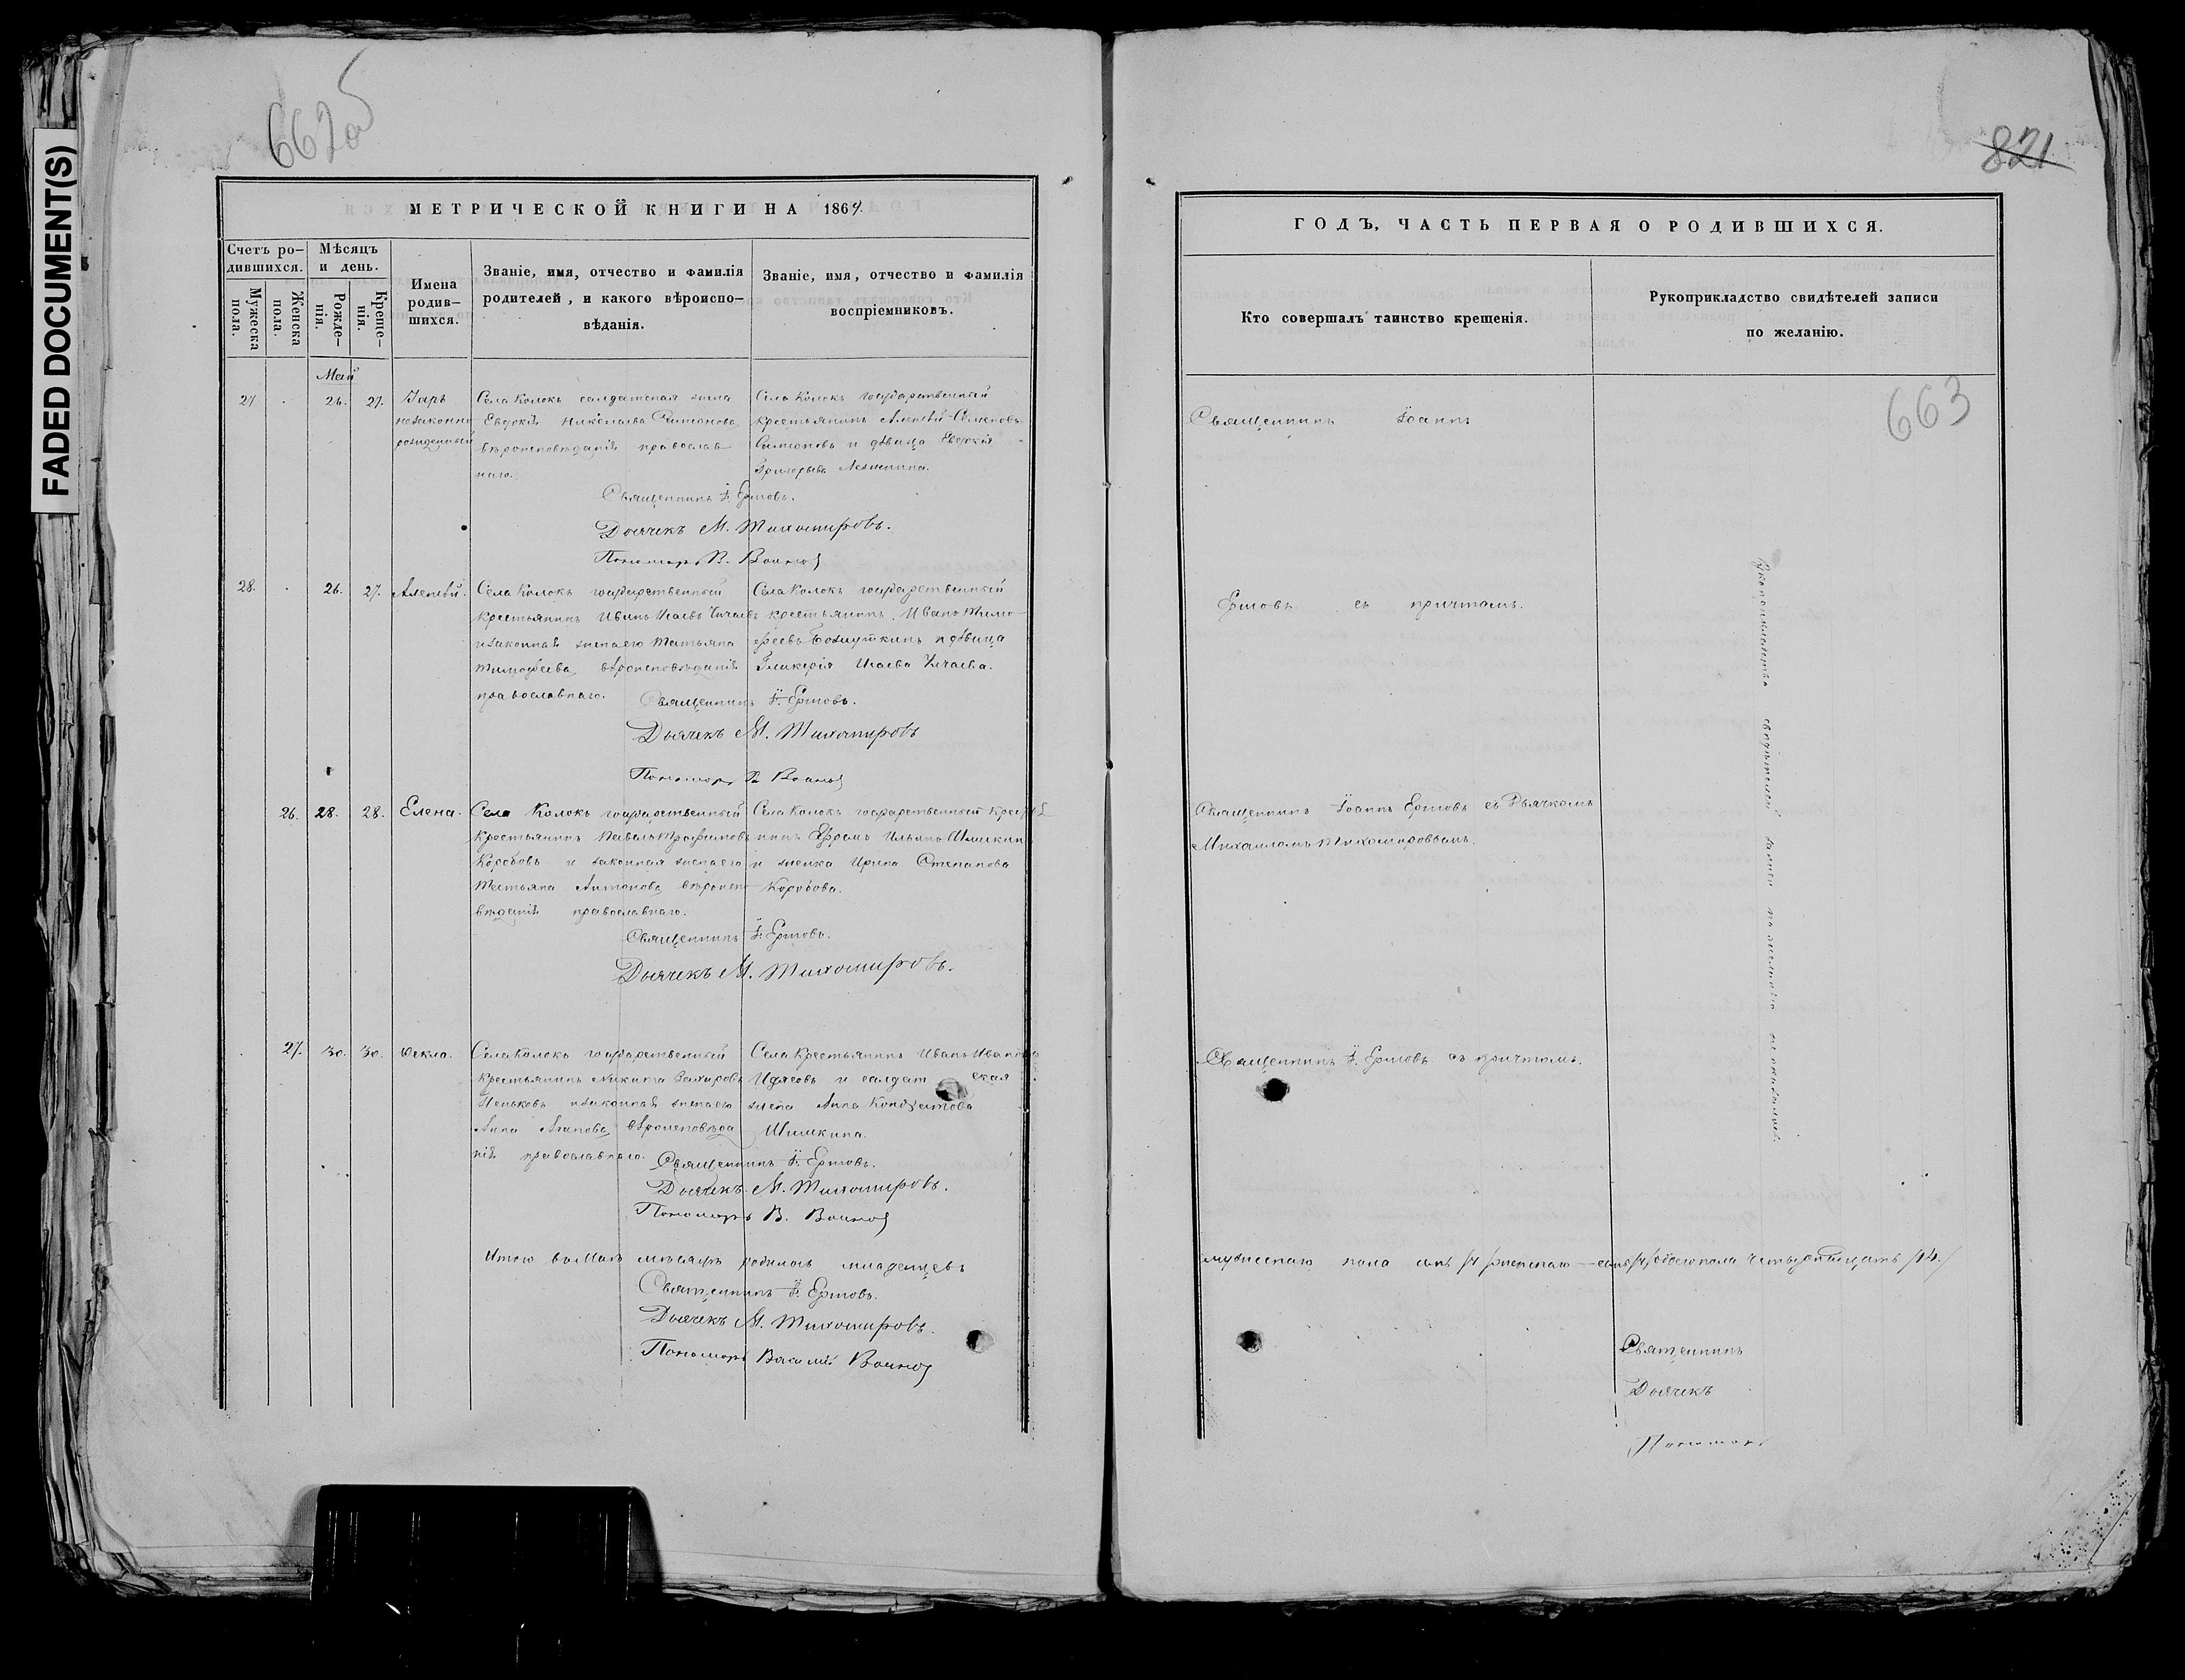 FADED DOCUMENT(S)
662об
821
МЕТРИЧЕСКОЙ КНИГИ НА 1864
Счетъ ро-
дившихся.
Мужеска
пола.
Женска
пола.
Мѣсяцъ
и день.
Рожде-
нія.
Креще-
нія.
Имена
родив-
шихся.
Званіе, имя, отчество и фамилія
родителей, и какого вѣроиспо-
вѣданія.
Званіе, имя, отчество и фамилія
воспріемниковъ.
Май
27 26. 27.
незаконно
рожденный
Села Колокъ солдатская жена
Евдокія Николаева Симонова
вѣроисповѣданія православ
наго.
Села Колокъ государственный
крестьянинъ Алексѣй Семеновъ
Симоновъ и дѣвица Евдокія
Григорьева
Священникъ І. Ершовъ.
Дьячекъ М. Тихомировъ.
Пономарь В. Воиновъ
28. 26. 27. Алексѣй.
Села Колокъ государственный
крестьянинъ Иванъ Исаевъ Чичаевъ
и законная жена его Татьяна
Тимофеева, вѣроисповѣданія
православнаго.
Села Колокъ государственный
крестьянинъ Иванъ Тимо
феевъ и дѣвица
Гликерія Исаева Чичаева.
Священникъ І. Ершовъ.
Дьячекъ М. Тихомировъ
Пономарь В. Воиновъ
26. 28. 28. Елена.
Села Колокъ государственный
крестьянинъ Павелъ Трофимовъ
Коробовъ и законная жена его
Татьяна Антонова вѣроиспо
вѣданія православнаго.
Села Колокъ государственный крестья
нинъ Ефремъ Ильинъ Шишкин
и женка Ирина Степанова
Коробова.
Священникъ І. Ершовъ.
Дьячекъ М. Тихомировъ.
27. 30. 30. Ѳекла.
Села Колокъ государственный
крестьянинъ Никита
и законная жена его
Анна вѣроисповѣда
нія православнаго.
Села Крестьянинъ Иванъ Ивановъ
и солдатская
жена Анна
Шишкина.
Священникъ І. Ершовъ.
Дьячекъ М. Тихомировъ.
Пономарь В. Воиновъ
Итого въ Маѣ мѣсяцѣ родилось младенцевъ
Священникъ І. Ершовъ.
Дьячекъ М. Тихомировъ.
Пономарь Василій Воиновъ
ГОДЪ, ЧАСТЬ ПЕРВАЯ О РОДИВШИХСЯ.
Кто совершалъ таинство крещенія.
Рукоприкладство свидѣтелей записи
по желанію.
663
Священникъ Іоаннъ
Ершовъ съ причтомъ.
Священникъ Іоаннъ Ершовъ съ Дьячкомъ
Михаиломъ Тихомировымъ.
Священникъ І. Ершовъ съ причтомъ.
Рукоприкладства свидѣтелей записи по желанію не оказалось.
мужескаго пола семь /7/ женскаго семь /7/ обоего пола четырнадцать /14./
Священникъ
Дьячекъ
Пономарь